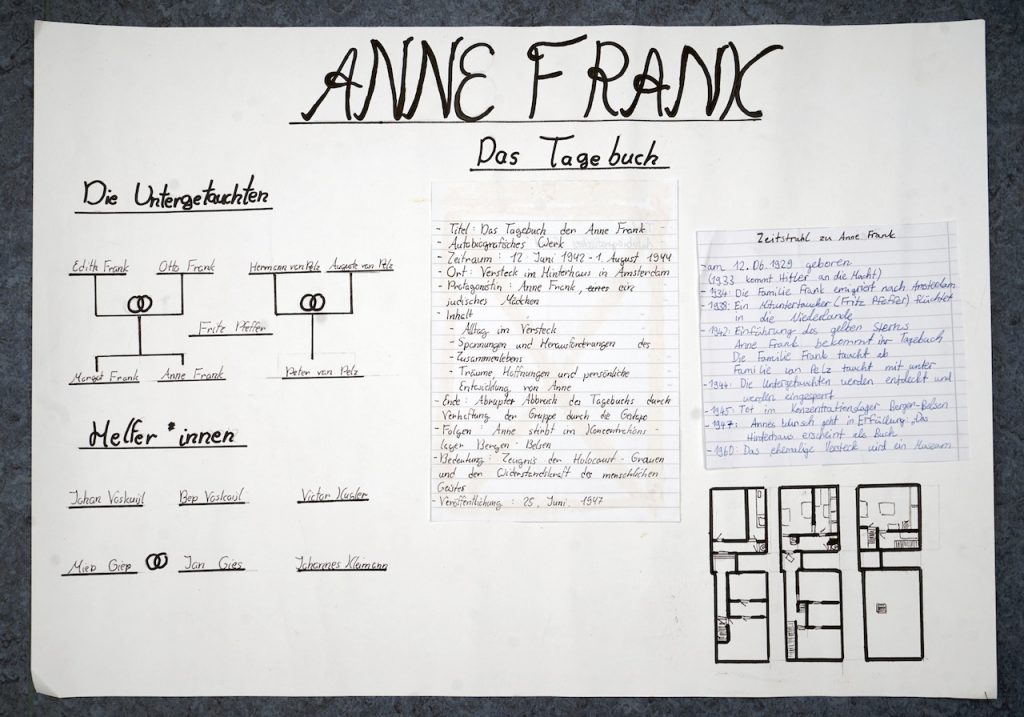 ANNE FRANK
Das Tagebuch
Die Untergetauchten
Edith Frank Otto Frank Hermann van Pelz Auguste van Pelz
Fritz Pfeffer
Margot Frank Anne Frank Peter van Pelz
Helfer*innen
Johan Voskuijl Bep Voskuijl Victor Kugler
Miep Giep Jan Gies Johannes Kleimann
- Titel: Das Tagebuch der Anne Frank
- Autobiografisches Werk
- Zeitraum: 12. Juni 1942 - 1. August 1944
- Ort: Versteck im Hinterhaus in Amsterdam
- Protagonistin: Anne Frank, ein
jüdisches Mädchen
- Inhalt
- Alltag im Versteck
- Spannungen und Herausforderungen des
- Zusammenlebens
- Träume, Hoffnungen und persönliche
Entwicklung von Anne
- Ende: Abrupter Abbruch des Tagebuchs durch
Verhaftung der Gruppe durch die Gestapo
- Folgen: Anne stirbt im Konzentrations-
lager Bergen-Belsen
- Bedeutung: Zeugnis der Holocaust-Grauen
und der Widerstandskraft des menschlichen
Geistes
- Veröffentlichung: 25. Juni 1947
Zeitstrahl zu Anne Frank
- am 12.06.1929 geboren
(1933 kommt Hitler an die Macht)
- 1934: Die Familie Frank emigriert nach Amsterdam
- 1938: Ein Mituntertaucher (Fritz Pfeffer) flüchtet
in die Niederlande
- 1942: Einführung des gelben Sterns
Anne Frank bekommt ihr Tagebuch
Die Familie Frank taucht ab
Familie van Pelz taucht mit unter
- 1944: Die Untergetauchten werden entdeckt und
werden eingesperrt
- 1945: Tot im Konzentrationslager Bergen-Belsen
- 1947: Annes Wunsch geht in Erfüllung: „Das
Hinterhaus erscheint als Buch
- 1960: Das ehemalige Versteck wird ein Museum